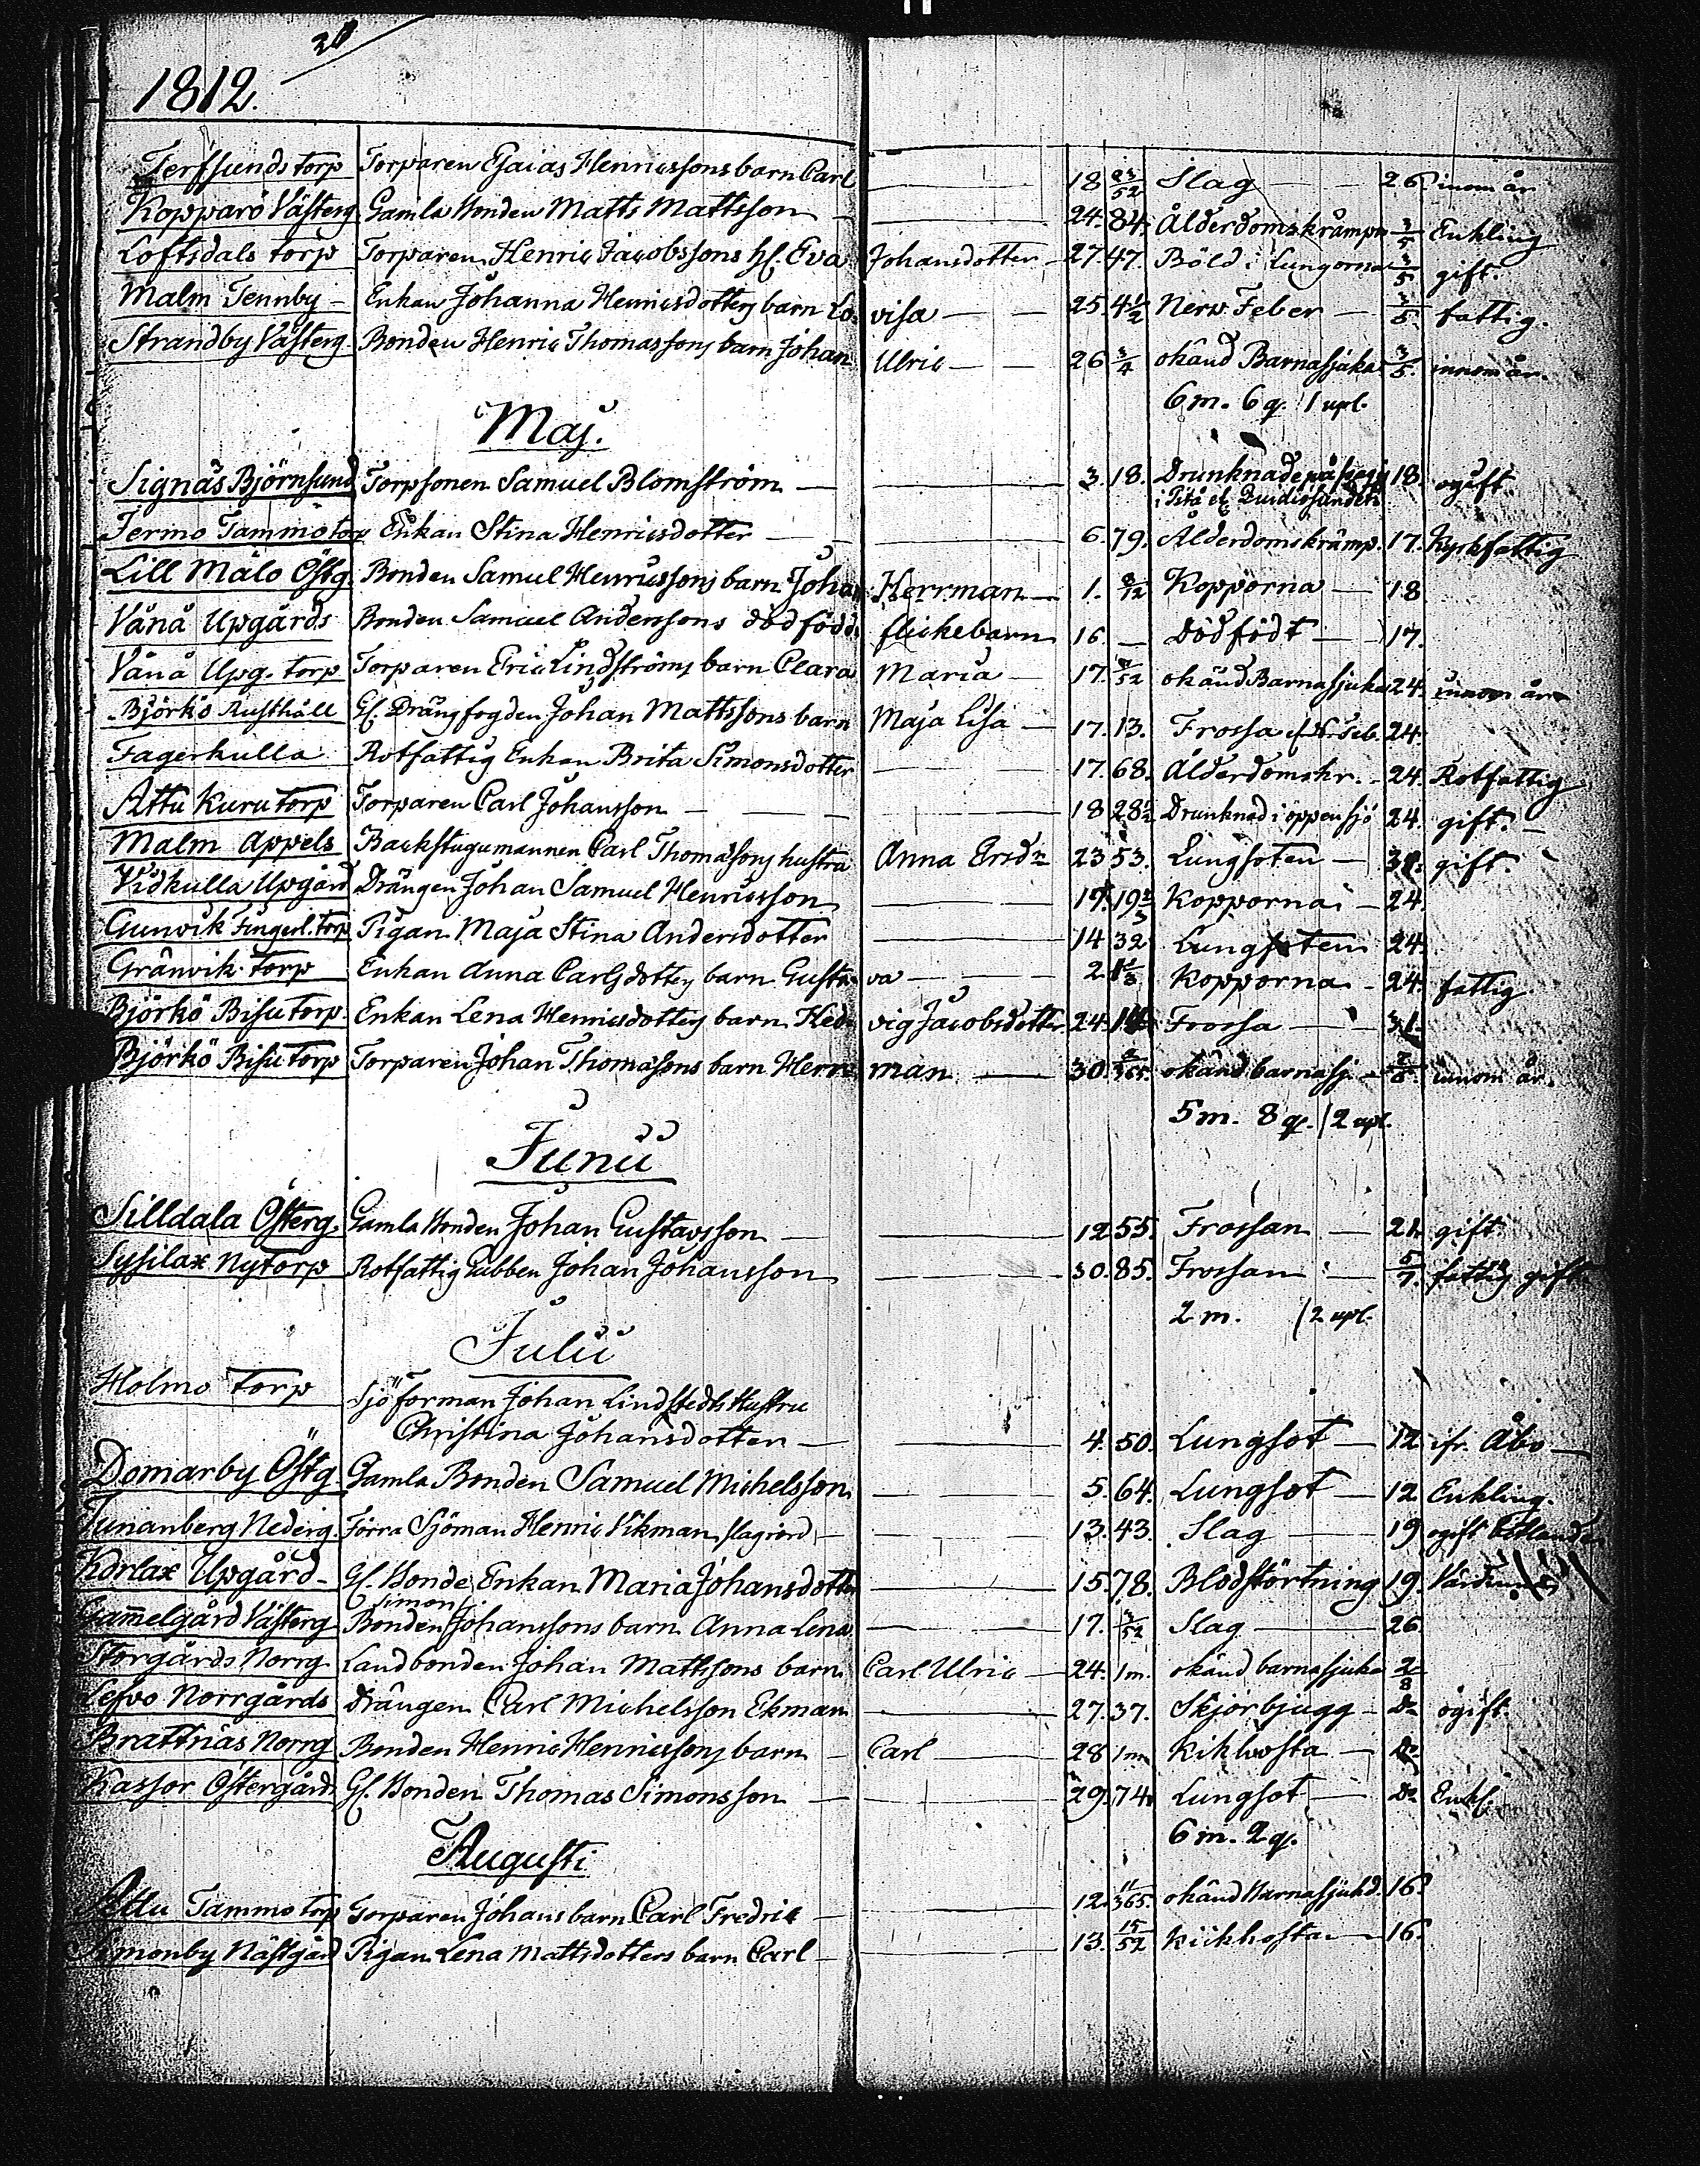 20
1812.
Terfsunds torp Torparen Esaias Henricssons barn Carl — 18 23/52 Slag — 26 inom år
Kopparö Västerg Gamla Bonden Matts Mattsson — 24. 84. Ålderdomskrämpor 3/5 Enkling
Loftsdals torp Torparen Henric Jacobssons h. Eva Johansdotter — 27. 47. Böld i Lungorna 3/5 gift.
Malm Tennby — Enkan Johanna Henricsdotters barn Lovisa — 25. 4 1/2 Nerv Feber — 3/5. fattig.
Strandby Västerg. Bonden Henric Thomassons barn Johan Ulric — 26 3/4 okänd Barnasjuka 3/5. innom år.
6 m. 6 q. / 1 upl.
Maj.
Signäs Björnsund Torpsonen Samuel Blomström — 3. 18. Drunknade på 18. ogift.
Jermo Tammo torp Enkan Stina Henricsdotter — 6. 79. Ålderdomskrämp. 17. Kyrkfattig
Lill Målo Östg. Bonden Samuel Henricssons barn Johan Herrman — 1. 8/12 Kopporna — 18
Vånå Upgårds Bonden Samuel Anderssons dödfödde flickebarn 16. — Dödfödt — 17.
Vånå Upg. torp Torparen Eric Lindströms barn Clara Maria — 17. 8/52 okänd Barnasjuka 24. innom år
Björkö Rusthåll Gl. Drängfogden Johan Mattssons barn Maja Lisa — 17. 13. Frossa 24.
Fagerkulla Rotfattig Enkan Brita Simonsdotter — 17. 68. Ålderdomskr. — 24. Rotfattig
Attu Kuru torp Torparen Carl Johansson — 18 28 1/2 Drunknad i öppen sjö 24. gift. —
Malm Appels Backstugumannen Carl Thomassons hustru Anna Ersdr 23 53. Lungsoten — 31. gift.
Vidkulla Upgård Drängen Johan Samuel Henricsson — 19. 19 2/3 Kopporna — 24.
Gunvik Fingerl. torp Pigan Maja Stina Andersdotter — 14 32 Lungsoten 24.
Gränvik torp Enkan Anna Carlsdotters barn Gustava — 2. 1 1/3 Kopporna — 24. fattig
Björkö Bisu torp. Enkan Lena Henricsdotters barn Hedvig Jacobsdotter 24. Frossa — 31.
Björkö Bisu torp Torparen Johan Thomassons barn Herrman — 30. 2/365. okänd barnasj. — 2/6. innom år.
5 m. 8 q. / 2 upl.
Junii
Silldala Österg. Gamla Bonden Johan Gustavsson — 12 55. Frossan — 21. gift.
Sysilax Nytorp Rotfattig Gubben Johan Johansson — 30. 85. Frossan — 5/7. fattig gift.
2 m. / 2 upl.
Julii
Holmo torp Sjöforman Johan Lindstedts Hustru
Christina Johansdotter — 4. 50. Lungsot — 12 ifr. Åbo —
Domarby Östg. Gamla Bonden Samuel Michelsson — 5. 64. Lungsot — 12 Enkling.
Tunanberg Nederg. Förra Sjöman Henric Vikman, slagrörd — 13. 43. Slag — 19 ogift
Korlax Upgård — Gl. Bonde Enkan Maria Johansdotter — 15. 78. Blodstörtning 19.
Simon
Gammelgård Västerg. Bonden Johanssons barn Anna Lena — 17. 3/52 Slag — 26.
Storgårds Norrg Landbonden Johan Mattssons barn Carl Ulric — 24. 1 m. okänd barnasjuka 2/8
Lefvo Norrgårds Drängen Carl Michelsson Ekman — 27. 37. Skjörbjugg — Do ogift.
Brattnäs Norrg Bonden Henric Henricssons barn — Carl — 28 1 m Kikhosta — Do
Kassor Östergård Gl. Bonden Thomas Simonsson — 29. 74. Lungsot — Do Enkl.
6 m. 2 q.
Augusti
Attu Tammo torp Torparen Johans barn Carl Fredric — 12. 11/365. okänd Barnasjukd. 16.
Simonby Nästgård Pigan Lena Mattsdotters barn Carl — 13. 15/52 Kikhosta — 16.